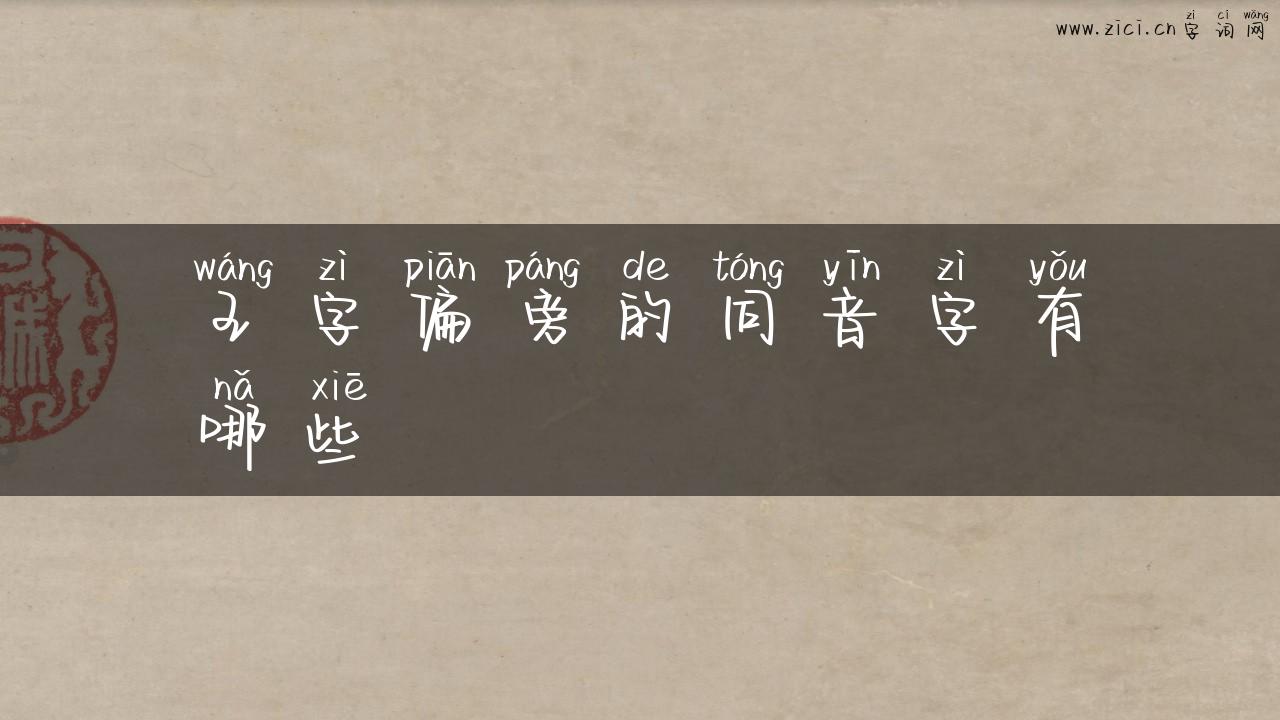 zì cí wǎng
www.zici.cn 字 词 网
wáng zì piān páng de tóng yīn zì yǒu
王 字 偏 旁 的 同 音 字 有
nǎ xiē
哪 些